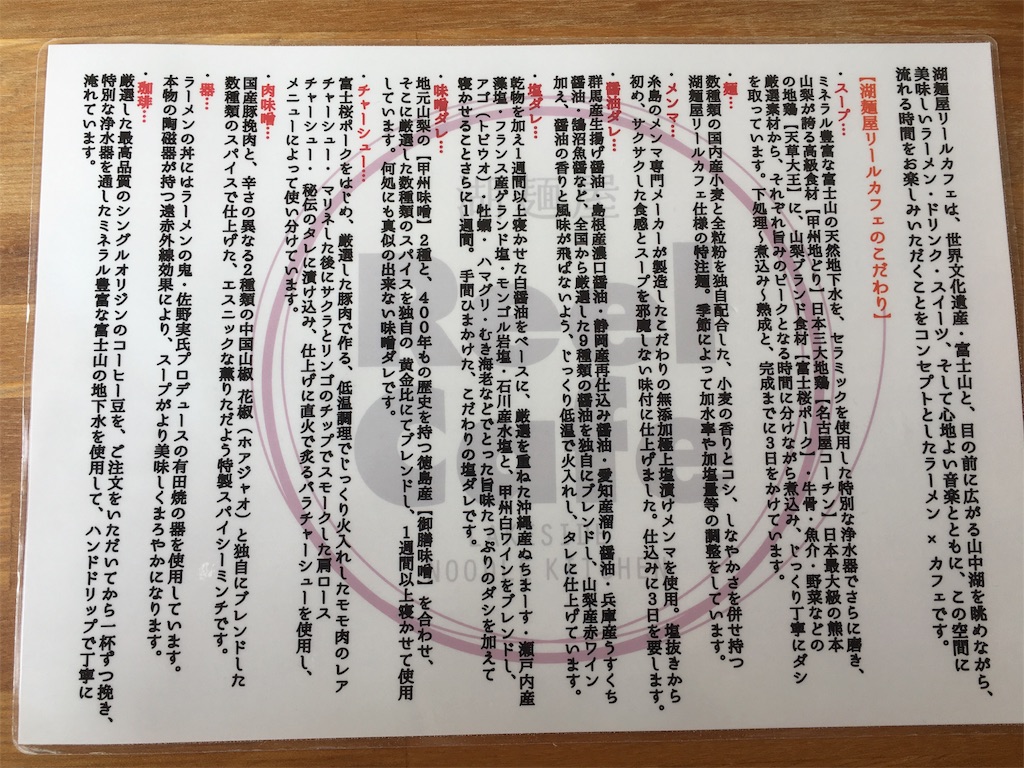 湖麺屋リールカフェは、世界文化遺産・富士山と、目の前に広がる山中湖を眺めながら、
美味しいラーメン・ドリンク・スイーツ、そして心地よい音楽とともに、この空間に
流れる時間をお楽しみいただくことをコンセプトとしたラーメン × カフェです。
【湖麺屋リールカフェのこだわり】
・スープ…
ミネラル豊富な富士山の天然地下水を、セラミックを使用した特別な浄水器でさらに磨き、
山梨が誇る高級食材【甲州地どり】日本三大地鶏【名古屋コーチン】日本最大級の熊本
の地鶏【天草大王】に、山梨ブランド食材【富士桜ポーク】・牛骨・魚介・野菜などの
厳選素材から、それぞれ旨みのピークとなる時間に分けながら煮込み、じっくり丁寧にダシ
を取っています。下処理~煮込み~熟成と、完成までに3日をかけています。
・麺…
数種類の国内産小麦と全粒粉を独自配合した、小麦の香りとコシ、しなやかさを併せ持つ
湖麺屋リールカフェ仕様の特注麺。季節によって加水率や加塩量等の調整をしています。
・メンマ…
糸島のメンマ専門メーカーが製造したこだわりの無添加極上塩漬けメンマを使用。塩抜きから
初め、サクサクした食感とスープを邪魔しない味付に仕上げました。仕込みに3日を要します。
・醤油ダレ…
群馬産生揚げ醤油・島根産濃口醤油・静岡産再仕込み醤油・愛知産溜り醤油・兵庫産うすくち
醤油・鵠沼魚醤など、全国から厳選した9種類の醤油を独自にブレンドし、山梨産赤ワイン
加え、醤油の香りと風味が飛ばないよう、じっくり低温で火入れし、タレに仕上げています。
・塩ダレ…
乾物を加え1週間以上寝かせた白醤油をベースに、厳選を重ねた沖縄産ぬちまーす・瀬戸内産
藻塩・フランス産ゲランド塩・モンゴル岩塩・石川産水塩と、甲州白ワインをブレンドし、
アゴ(トビウオ)・牡蠣・ハマグリ・むき海老などでとった旨味たっぷりのダシを加えて
寝かせることさらに1週間。 手間ひまかけた、こだわりの塩ダレです。
・味噌ダレ…
地元山梨の【甲州味噌】2種と、400年もの歴史を持つ徳島産【御膳味噌】を合わせ、
そこに厳選した数種類のスパイスを独自の 黄金比にてブレンドし、1週間以上寝かせて使用
しています。何処にも真似の出来ない味噌ダレです。
・チャーシュー…
富士桜ポークをはじめ、厳選した豚肉で作る、低温調理でじっくり火入れしたモモ肉のレア
チャーシュー・ マリネした後にサクラとリンゴのチップでスモークした肩ロース
チャーシュー・ 秘伝のタレに漬け込み、仕上げに直火で炙るバラチャーシューを使用し、
メニューによって使い分けています。
・肉味噌…
国産豚挽肉と、辛さの異なる2種類の中国山椒 花椒(ホアジャオ)と独自にブレンドした
数種類のスパイスで仕上げた、エスニックな薫りただよう特製スパイシーミンチです。
・器…
ラーメンの丼にはラーメンの鬼・佐野実氏プロデュースの有田焼の器を使用しています。
本物の陶磁器が持つ遠赤外線効果により、スープがより美味しくまろやかになります。
・珈琲…
厳選した最高品質のシングルオリジンのコーヒー豆を、ご注文をいただいてから一杯ずつ挽き、
特別な浄水器を通したミネラル豊富な富士山の地下水を使用して、ハンドドリップで丁寧に
淹れています。
湖麺屋
Reel
Cafe